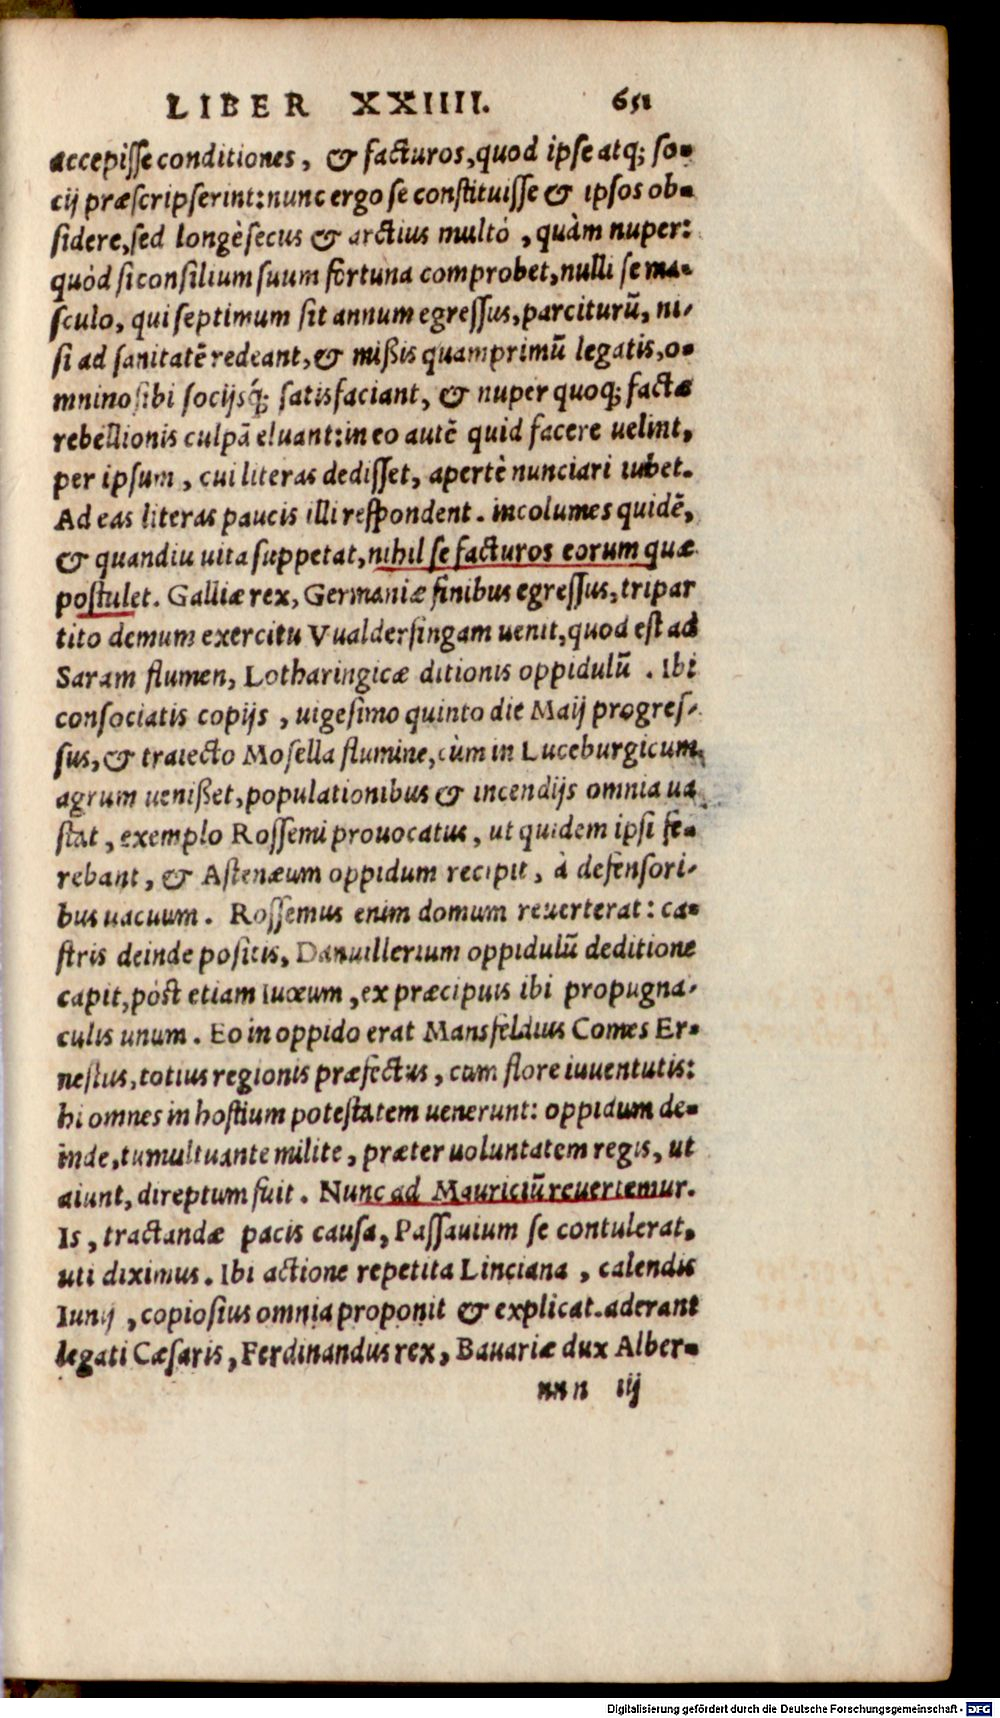 LIBER XXIIII. 651
accepisse conditiones, & facturos, quod ipse atq; so-
cij præscripserint: nunc ergo se constituisse & ipsos ob-
sidere, sed longè secus & arctius multò, quàm nuper:
quòd si consilium suum fortuna comprobet, nulli se ma-
sculo, qui septimum sit annum egressus, parciturũ, ni-
si ad sanitatẽ redeant, & mißis quamprimũ legatis, o-
mnino sibi socijsq́; satisfaciant, & nuper quoq; factæ
rebellionis culpã eluant: in eo autẽ quid facere uelint,
per ipsum, cui literas dedisset, apertè nunciari iubet.
Ad eas literas paucis illi respondent. incolumes quidẽ,
& quandiu uita suppetat, nihil se facturos eorum quæ
postulet. Galliæ rex, Germaniæ finibus egressus, tripar
tito demum exercitu Vualdersingam uenit, quod est ad
Saram flumen, Lotharingicæ ditionis oppidulũ. Ibi
consociatis copijs, uigesimo quinto die Maij progres-
sus, & traiecto Mosella flumine, cùm in Luceburgicum
agrum uenißet, populationibus & incendijs omnia ua
stat, exemplo Rossemi prouocatus, ut quidem ipsi fe-
rebant, & Astenæum oppidum recipit, à defensori-
bus uacuum. Rossemus enim domum reuerterat: ca-
stris deinde positis, Danuillerium oppidulũ deditione
capit, pòst etiam Iuœum, ex præcipuis ibi propugna-
culis unum. Eo in oppido erat Mansfeldius Comes Er-
nestus, totius regionis præfectus, cum flore iuuentutis:
hi omnes in hostium potestatem uenerunt: oppidum de-
inde, tumultuante milite, præter uoluntatem regis, ut
aiunt, direptum fuit. Nunc ad Mauriciũ reuertemur.
Is, tractandæ pacis causa, Passauium se contulerat,
uti diximus. Ibi actione repetita Linciana, calendis
Iunij, copiosius omnia proponit & explicat. aderant
legati Cæsaris, Ferdinandus rex, Bauariæ dux Alber-
nnn iij
Digitalisierung gefördert durch die Deutsche Forschungsgemeinschaft - DFG